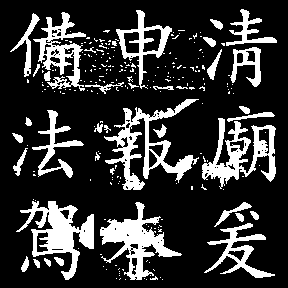 清廟爰
申報本
備法駕